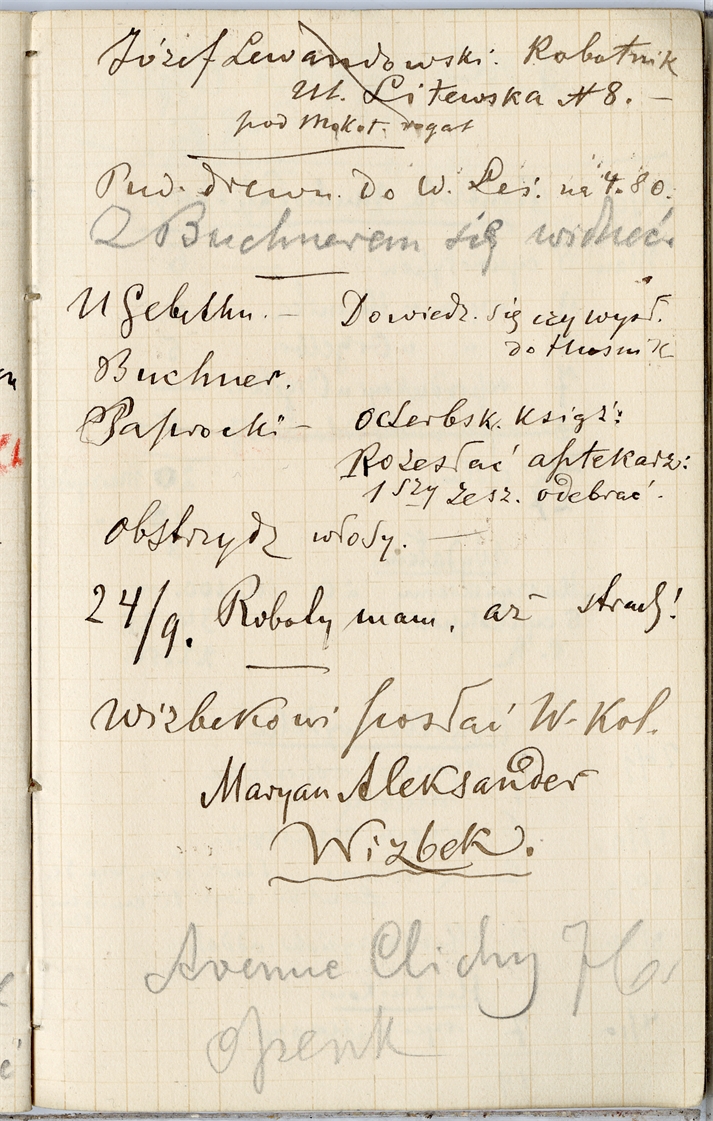 Józef Lewandowski. Robotnik
Ul. Litewska N 8. —
pod Mokot. rogat
Pud. drewn. Do W. Leś. na 4. 80.
Z Buchnerem się widzieć.
U Gebethn. — Dowiedz. się czy wysł.
do
Buchner.
Paprocki — oderbsk. książ:
Rozesłać aptekarz:
1szy zesz. odebrać.
Obstrzydz włosy. —
24/9. Roboty mam, aż strach!
Wizbekowi posłać W. Kol.
Maryan Aleksander
Wizbek.
Avenue Clichy 76